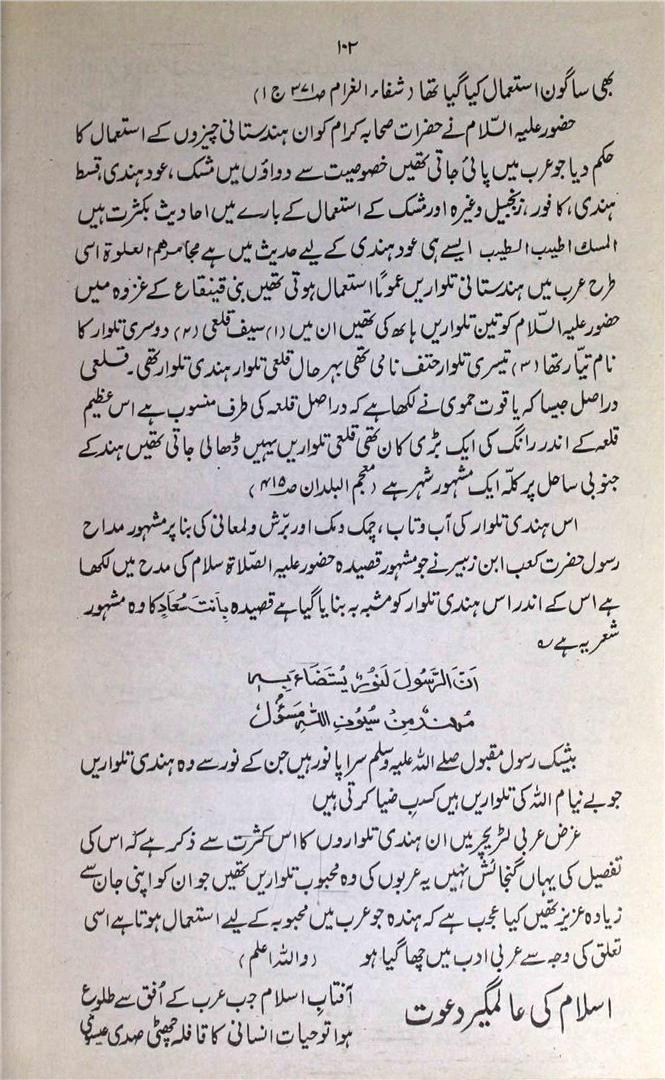 ۱۰۲
بھی ساگون استعمال کیا گیا تھا (شفاء الغرام صـ ۳۷۱ ج ۱)
حضور علیہ السّلام نے حضرات صحابہ کرام کو ان ہندستانی چیزوں کے استعمال کا
حکم دیا جو عرب میں پائی جاتی تھیں خصوصیت سے دواؤں میں مشک، عود ہندی، قسط
ہندی، کافور، زنجبیل وغیرہ اور مشک کے استعمال کے بارے میں احادیث بکثرت ہیں
المسک اطیب الطیب ایسے ہی عود ہندی کے لیے حدیث میں ہے مجامرھم العلوۃ اسی
طرح عرب میں ہندستانی تلواریں عموماً استعمال ہوتی تھیں بنی قینقاع کے غزوہ میں
حضور علیہ السّلام کو تین تلواریں ہاتھ کی تھیں ان میں (۱) سیف قلعی (۲) دوسری تلوار کا
نام تبّار تھا (۳) تیسری تلوار حتف نامی تھی بہر حال قلعی تلوار ہندی تلوار تھی۔ قلعی
دراصل جیسا کہ یاقوت حموی نے لکھا ہے کہ دراصل قلعہ کی طرف منسوب ہے اس عظیم
قلعہ کے اندر رانگ کی ایک بڑی کان تھی قلعی تلواریں یہیں ڈھالی جاتی تھیں ہند کے
جنوبی ساحل پر کلّہ ایک مشہور شہر ہے (معجم البلدان صـ ۴۱۵)
اس ہندی تلوار کی آب و تاب، چمک دمک اور برّش و لمعانی کی بنا پر مشہور مداح
رسول حضرت کعب ابن زبیر نے جو مشہور قصیدہ حضور علیہ الصّلاۃ سلام کی مدح میں لکھا
ہے اس کے اندر اس ہندی تلوار کو مشبہ بہ بنایا گیا ہے قصیدہ بَانَت سُعَاد کا وہ مشہور
شعر یہ ہے ؎
اَنَّ الرَّسُولَ لَنُورٌ یُستَضَاءُ بِہٖ
مُہَنَّدٌ مِنْ سُیُوفِ اللہِ مَسؤُلُ
بیشک رسول مقبول صلے اللہ علیہ وسلم سراپا نور ہیں جن کے نور سے وہ ہندی تلواریں
جو بے نیام اللہ کی تلواریں ہیں کسبِ ضیا کرتی ہیں
غرض عربی لٹریچر میں ان ہندی تلواروں کا اس کثرت سے ذکر ہے کہ اس کی
تفصیل کی یہاں گنجائش نہیں یہ عربوں کی وہ محبوب تلواریں تھیں جو ان کو اپنی جان سے
زیادہ عزیز تھیں کیا عجب ہے کہ ہندہ جو عرب میں محبوبہ کے لیے استعمال ہوتا ہے اسی
تعلق کی وجہ سے عربی ادب میں چھا گیا ہو (واللہ اعلم)
اسلام کی عالمگیر دعوت
آفتابِ اسلام جب عرب کے اُفق سے طلوع
ہوا تو حیاتِ انسانی کا قافلہ چھٹی صدی عیسوی